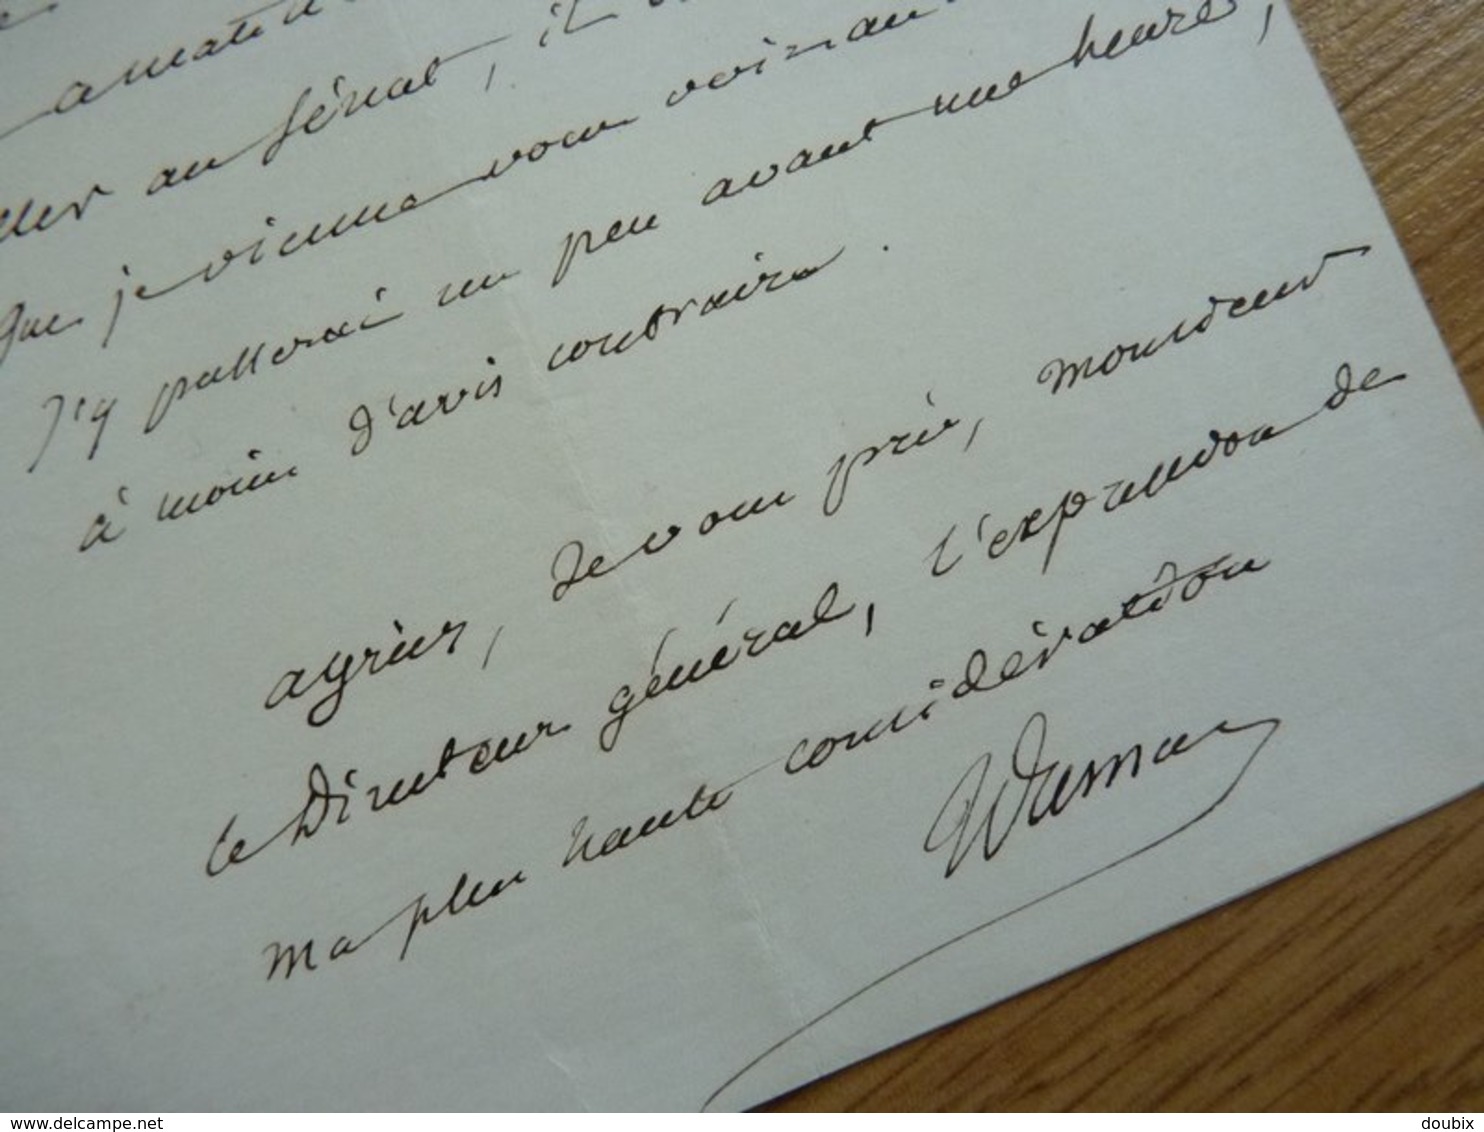 au Sénat, il
que je vienne vous voir au
j'y passerai un peu avant une heure,
à moins d'avis contraire.
agréez, Je vous prie, monsieur
le Directeur général, l'expression de
ma plus haute considération
delcampe.net
doubix